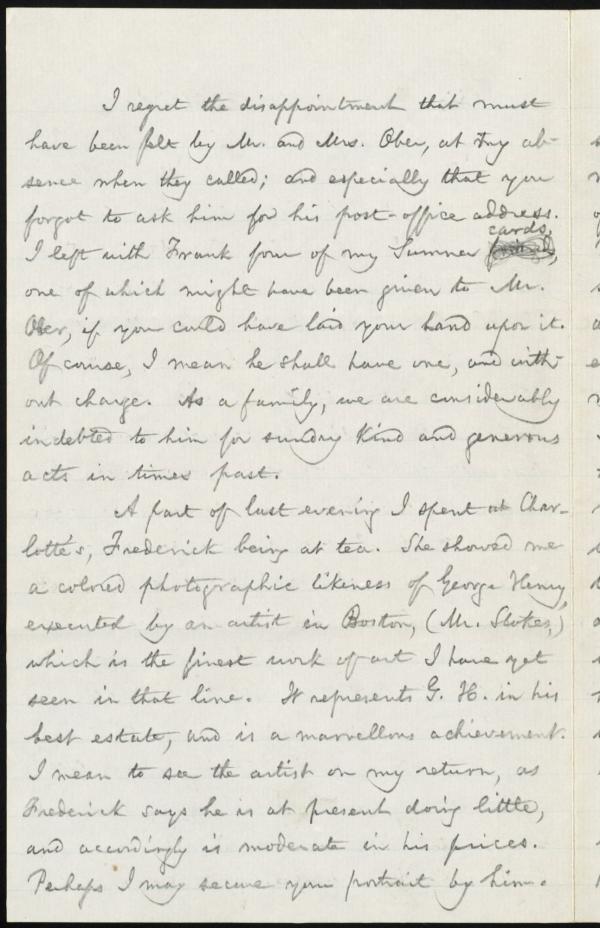 I regret the disappointment that must
have been felt by Mr. and Mrs. Ober, at my ab-
sence when they called; and especially that you
forgot to ask him for his post-office address.
cards,
I left with Frank four of my Sumner
one of which might have been given to Mr.
Ober, if you could have laid your hand upon it.
Of course, I mean he shall have one, and with-
out charge. As a family, we are considerably
indebted to him for sundry kind and generous
acts in times past.
A part of last evening I spent at Char-
lotte's, Frederick being at tea. She showed me
a colored photographic likeness of George Henry,
executed by an artist in Boston, (Mr. Stokes,)
which is the finest work of art I have yet
seen in that line. It represents G. H. in his
best estate, and is a marvellous achievement.
I mean to see the artist on my return, as
Frederick says he is at present doing little,
and accordingly is moderate in his prices.
Perhaps I may secure your portrait by him.